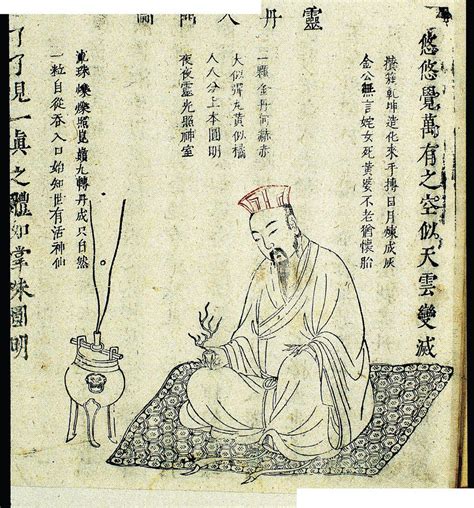 靈丹入鼎圖
悠悠覺萬有之空似天雲變滅
攢簇乾坤造化來手摶日月煉成灰
金公無言姹女死黃婆不老猶懷胎
一顆金丹何赫赤
大似彈丸黃似橘
人人分上本圓明
夜夜靈光照神室
黍珠爍爍照崑巔九轉丹成只自然
一粒自從吞入口始知世有活神仙
了了見一真之體如掌珠圓明